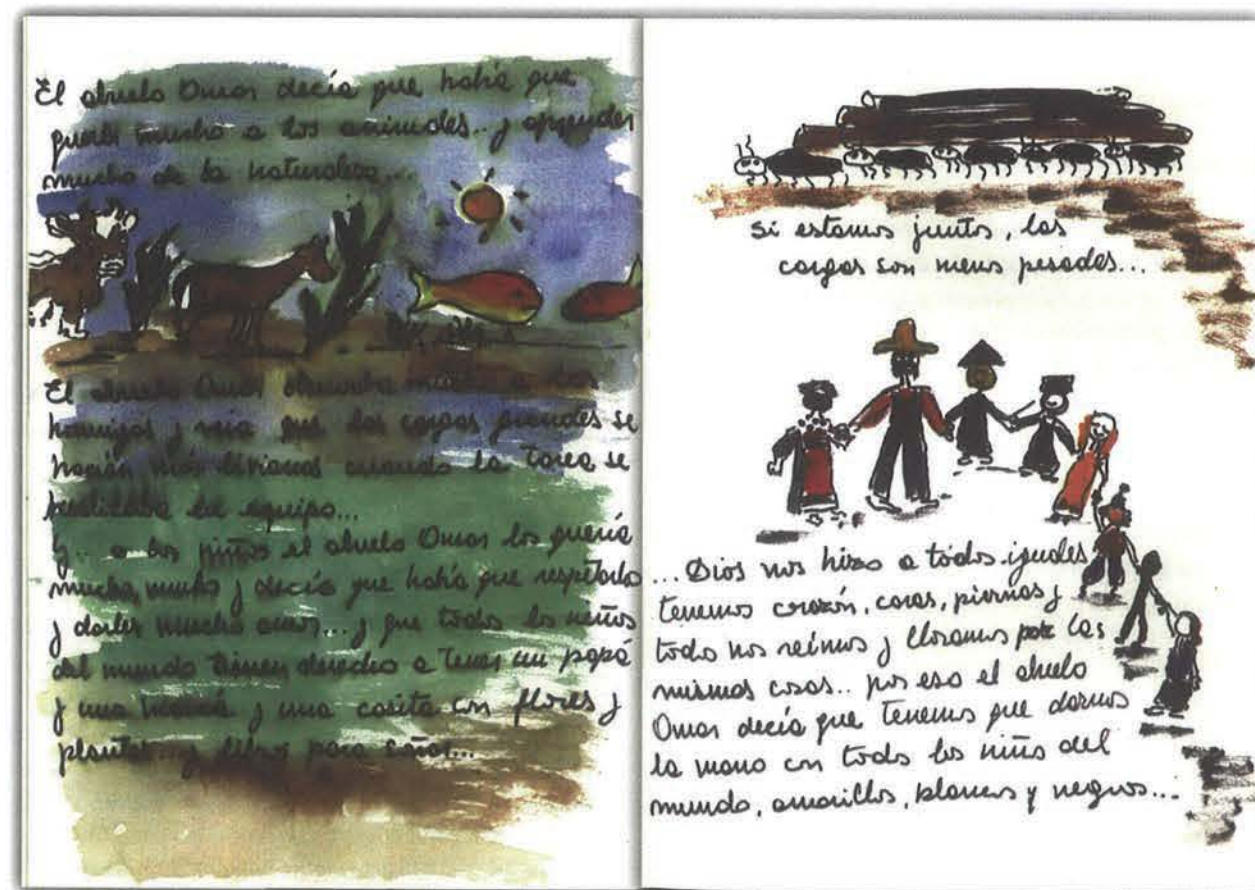 El abuelo Omar decía que había que
querer mucho a los animales.. y aprender
mucho de la naturaleza...
El abuelo Omar observaba mucho a las
hormigas y veía que las cargas grandes se
hacían más livianas cuando la tarea se
realizaba en equipo...
y... a los niños el abuelo Omar los quería
mucho, mucho y decía que había que respetarlos
y darles mucho amor... y que todos los niños
del mundo tienen derecho a tener un papá
y una mamá y una casita con flores y
plantas... y libros para soñar...
si estamos juntos, las
cargas son menos pesadas...
...Dios nos hizo a todos iguales
tenemos corazón, caras, piernas y
todos nos reímos y lloramos por las
mismas cosas.. por eso el abuelo
Omar decía que tenemos que darnos
la mano con todos los niños del
mundo, amarillos, blancos y negros...